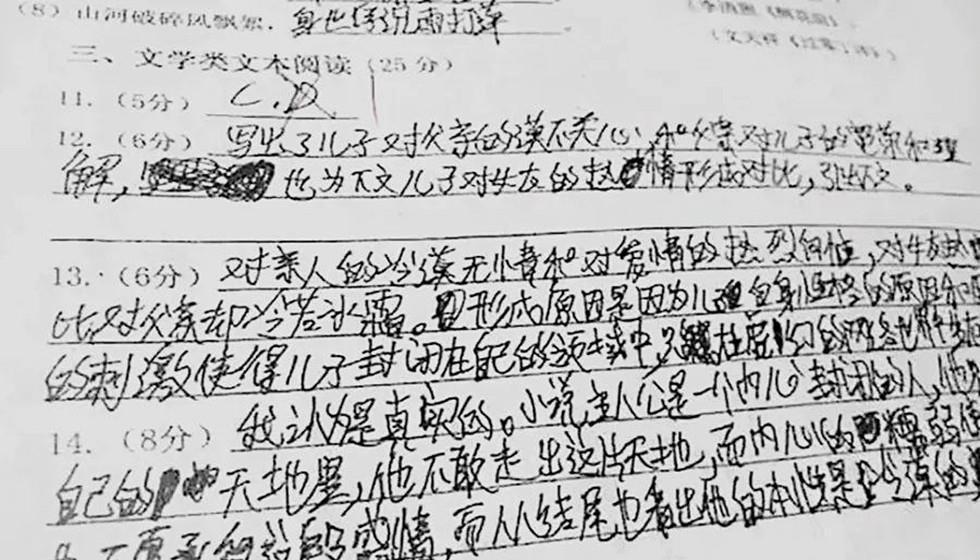 (8) 山河破碎风飘絮，身世浮沉雨打萍
(李清照《醉花阴》)
(文天祥《过零丁洋》)
三、文学类文本阅读 (25 分)
11. (5分) C.D
12. (6分) 写出了儿子对父亲的冷漠不关心，和父亲对儿子的
解，也为下文儿子对女友的热情形成对比，引出下文。
13. (6分) 对亲人的冷漠无情和对爱情的热烈，对女友
比，对父亲却冷若冰霜。形成原因是因为儿自身性格的原因和
的刺激使得儿子封闭在自己的领域中，的网络世界
14. (8分) 我认为是真实的。小说主人公是一个内心封闭的人，他
自己的天地里，他不敢走出这片天地，而内心的懦弱
感情，而从结尾也看出他的本性是冷漠的